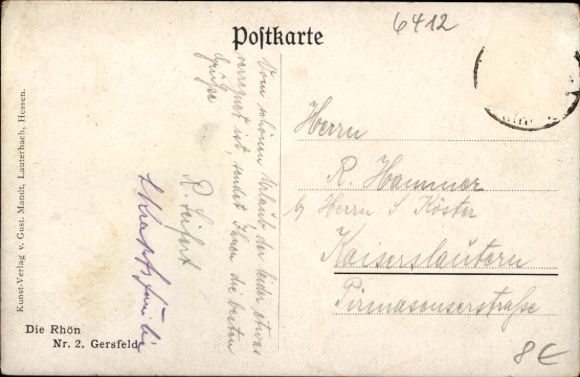 6412
Postkarte
Vom schönen Urlaub der leider etwas
verregnet ist, sendet Ihnen die besten
Grüße
R. Seifert
Herrn
R. Hammer
b/ Herrn S. Köster
Kaiserslautern
Pirmasenserstraße
Kunst-Verlag v. Gust. Mandt, Lauterbach, Hessen.
Die Rhön
Nr. 2. Gersfeld
8€